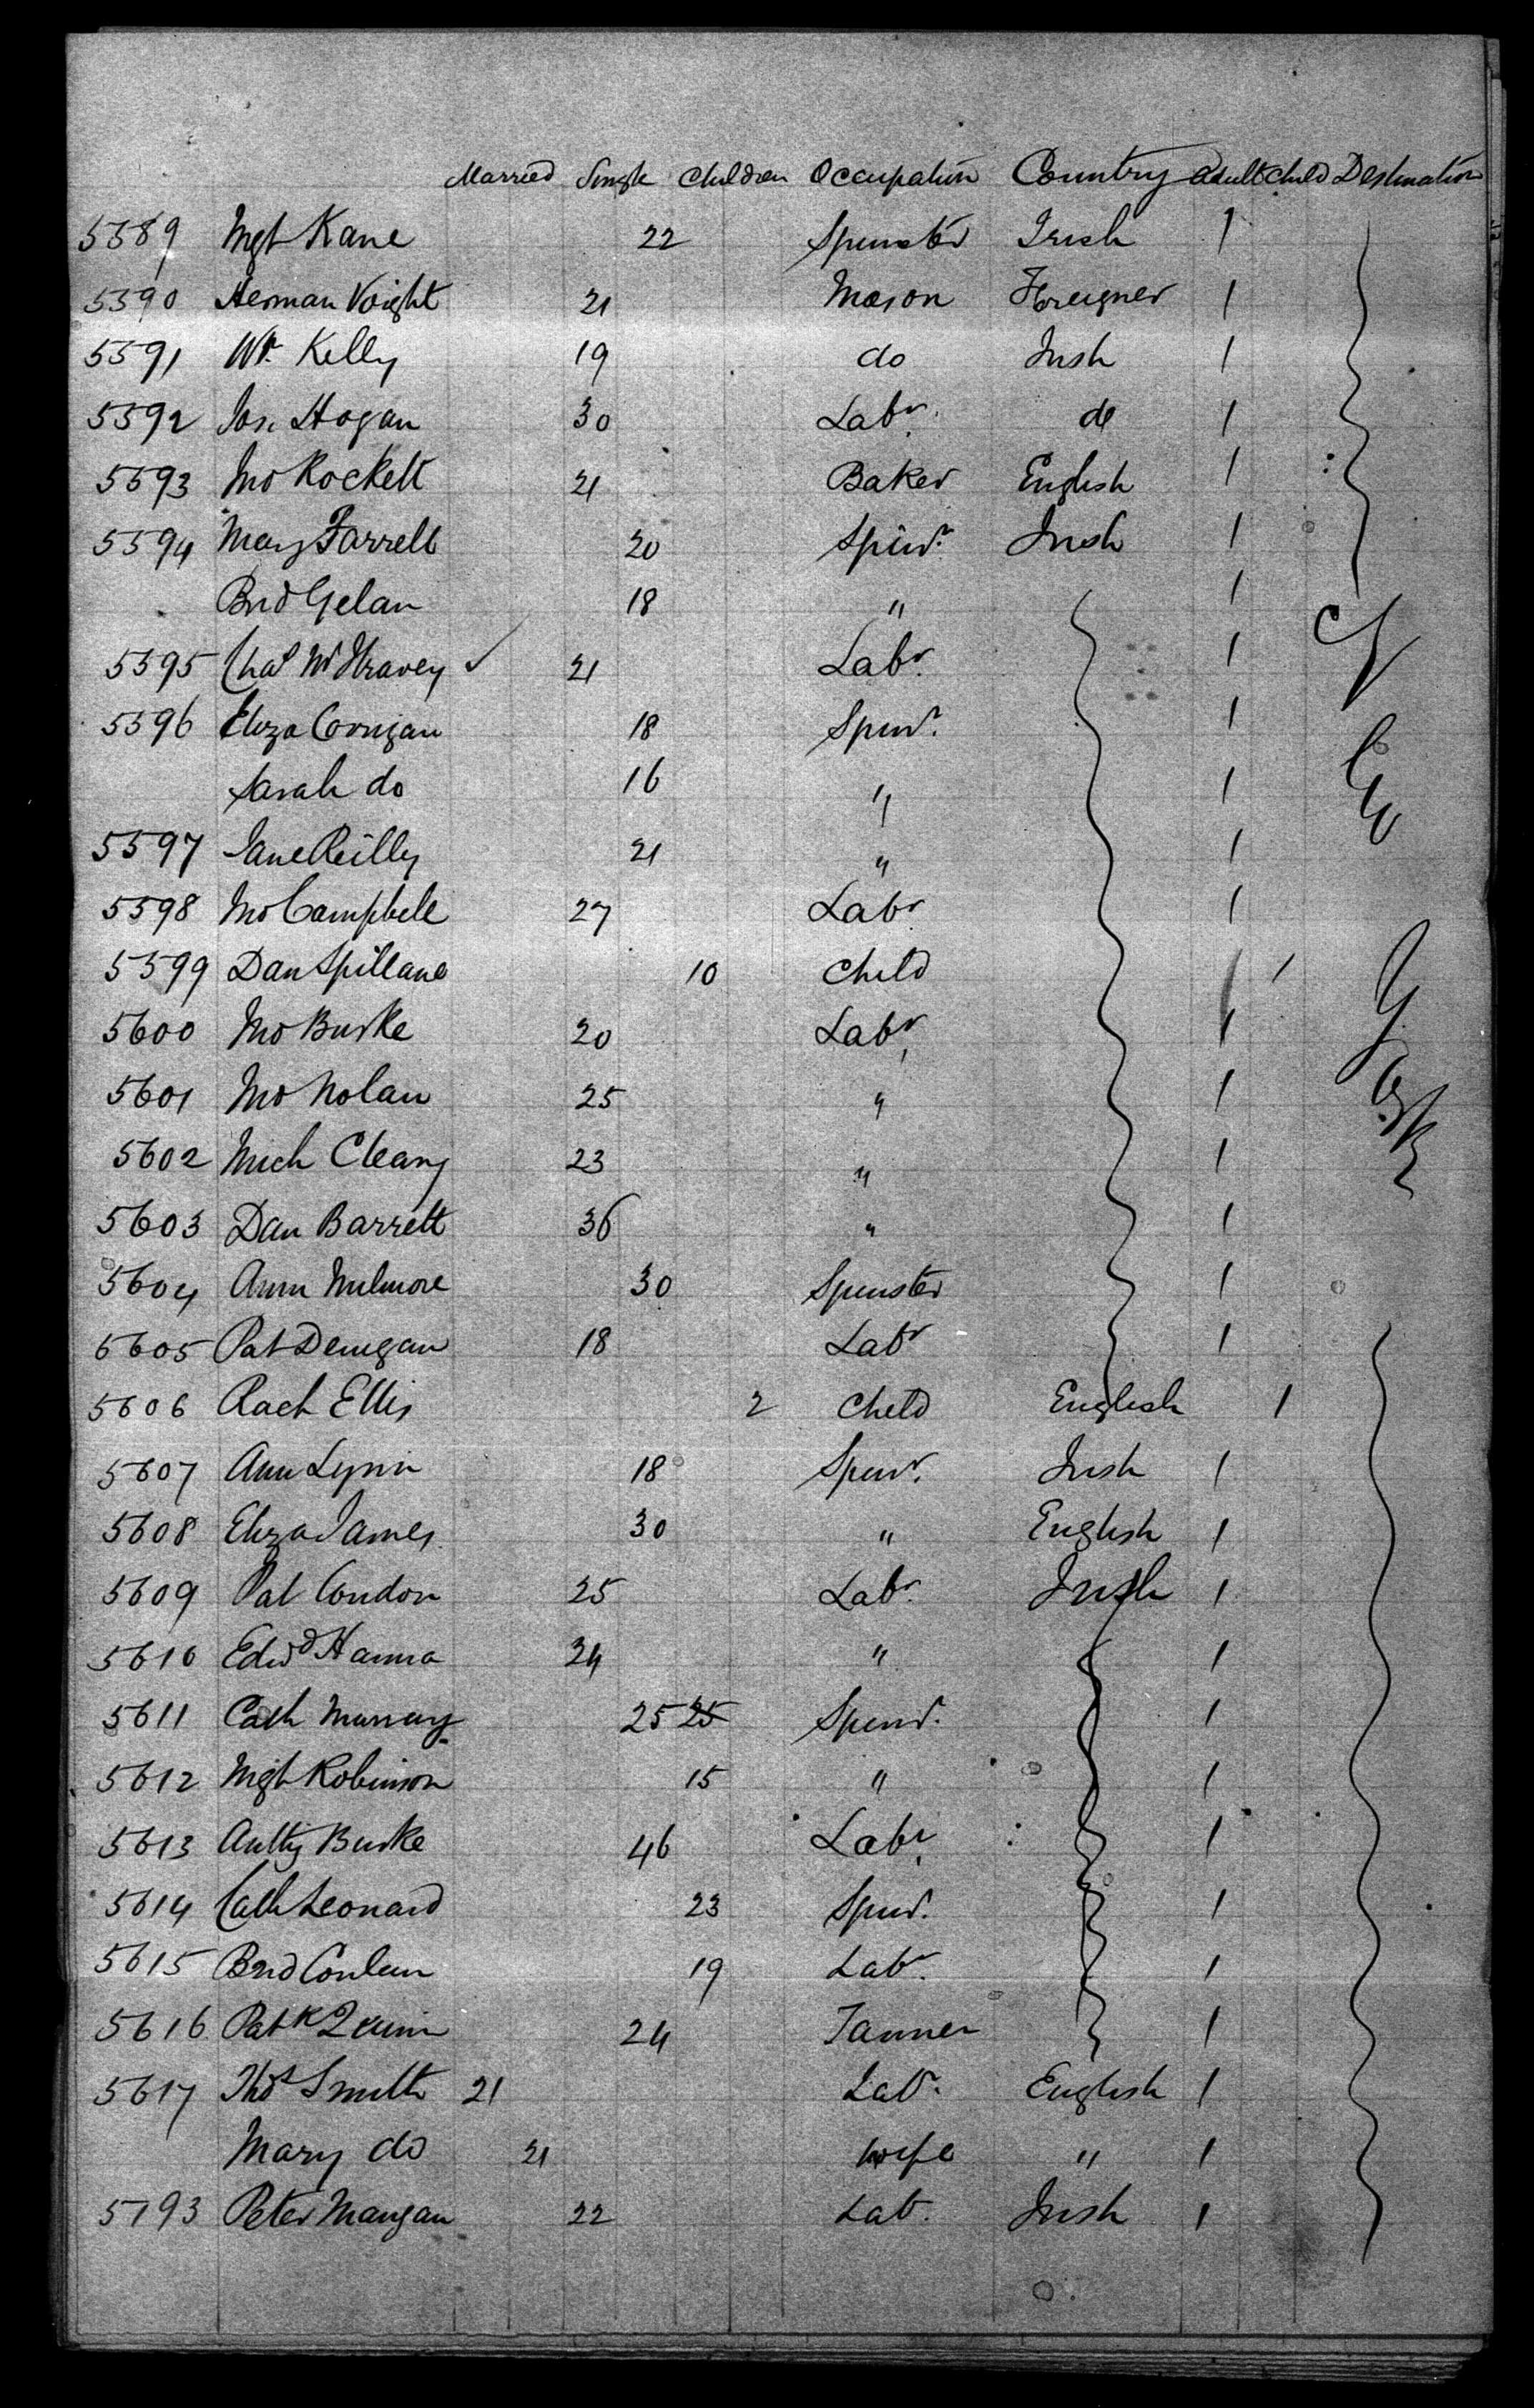 Married Single Children Occupation Country Adult Child Destination
5589 Mgt Kane 22 Spinster Irish 1
5590 Herman Voight 21 Mason Foreigner 1
5591 Wm Kelly 19 do Irish 1
5592 Jas. Hogan 30 Labr. do 1
5593 Jno Rockett 21 Baker English 1
5594 Mary Farrell 20 Spinr. Irish 1
Brid Gelan 18 " 1
5595 Chas 21 Labr. 1
5596 Eliza Corrigan 18 Spinr. 1
Sarah do 16 " 1
5597 Jane Reilly 21 " 1
5598 Jno Campbell 27 Labr 1
5599 Dan Spillane 10 Child 1
5600 Jno Burke 20 Labr 1
5601 Jno Nolan 25 " 1
5602 Mich Cleary 23 " 1
5603 Dan Barrett 36 " 1
5604 Ann Milmore 30 Spinster 1
5605 Pat Denegan 18 Labr 1
5606 Rach Ellis 2 Child English 1
5607 Ann Lynn 18 Spinr. Irish 1
5608 Eliza James 30 " English 1
5609 Pat Condon 25 Labr. Irish 1
5610 Edwd Hanna 24 " 1
5611 Cath Murray 25 25 Spinr. 1
5612 Mgt Robinson 15 " 1
5613 Antty Burke 46 Labr. 1
5614 Cath Leonard 23 Spinr. 1
5615 Brid Conlan 19 Labr. 1
5616 Patk Quinn 24 Tanner 1
5617 Thos Smith 21 Labr. English 1
Mary do 21 wife " 1
5793 Peter Mangan 22 Lab. Irish 1